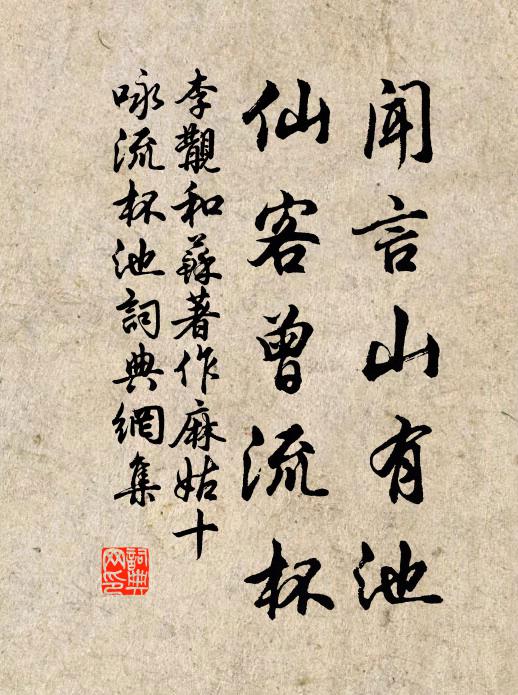 闻言山有池
仙客曾流杯
李觀和蘇著作麻姑十
咏流杯池詞典網集
詞典网印